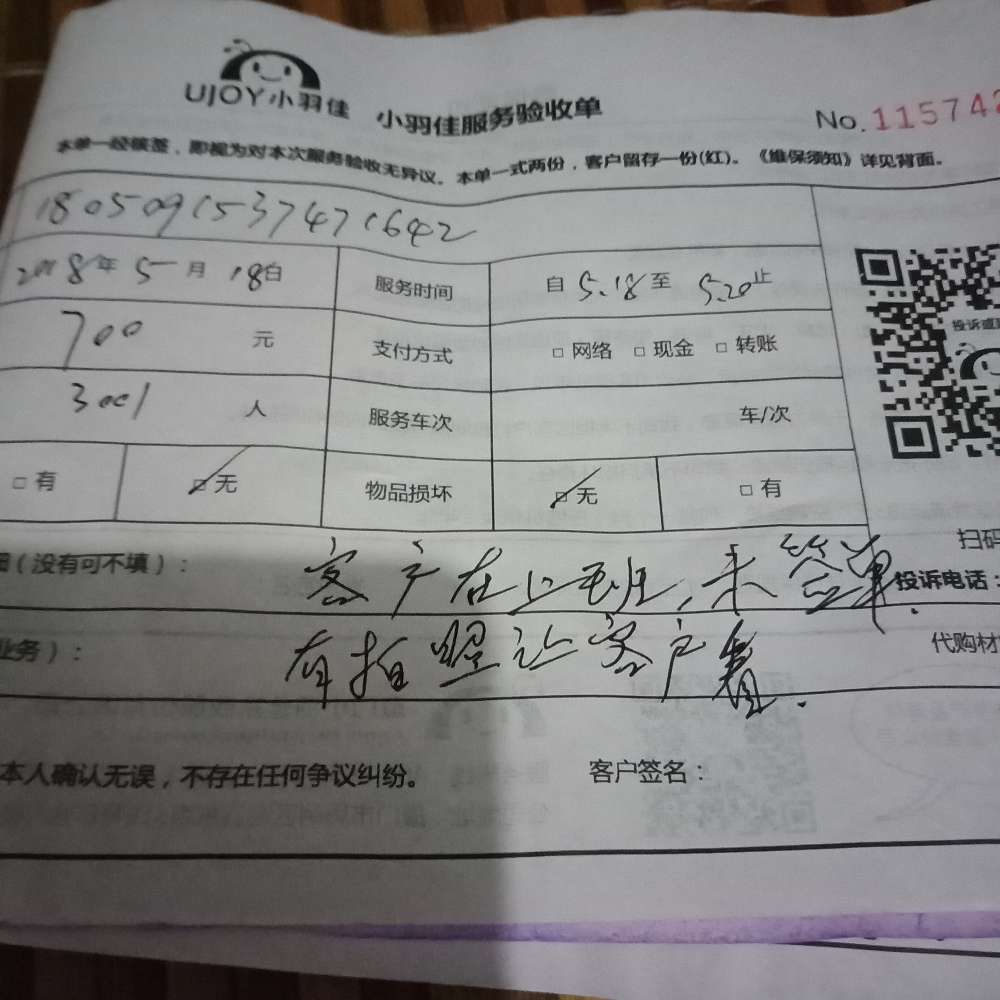 UJOY小羽佳 小羽佳服务验收单 No.115742
本单一经核签，即视为对本次服务验收无异议。本单一式两份，客户留存一份(红)。《维保须知》详见背面。
1805091537471642
2018年 5 月 18日 服务时间 自 5.18 至 5.20 止
700 元 支付方式 □ 网络 □ 现金 □ 转账
投诉或
3001 人 服务车次 车/次
□ 有 □ 无 物品损坏 □ 无 □ 有
扫码
(没有可不填)： 客户在上班,未签单. 投诉电话：
业务)： 有拍照让客户看. 代购材
本人确认无误，不存在任何争议纠纷。 客户签名：